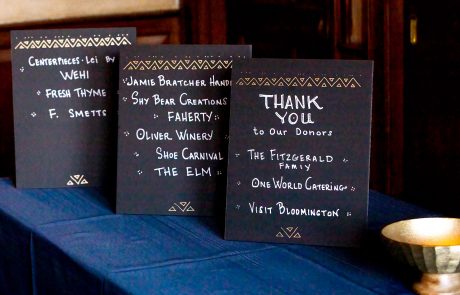 Centerpieces · Lei by
Wehi
Fresh Thyme
F. Smetts
Jamie Bratcher
Shy Bear Creations
Faherty
Oliver Winery
Shoe Carnival
The Elm
THANK
YOU
to Our Donors
The Fitzgerald
Family
One World Catering
Visit Bloomington